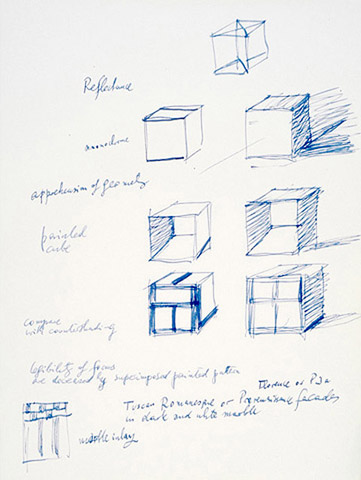 Reflectance
monochrome
apprehension of geometry
painted
cube
compare
with countershading
legibility of form
superimposed painted pattern
Florence or Pisa
Tuscan Romanesque or facades
in dark and white marble
marble inlay